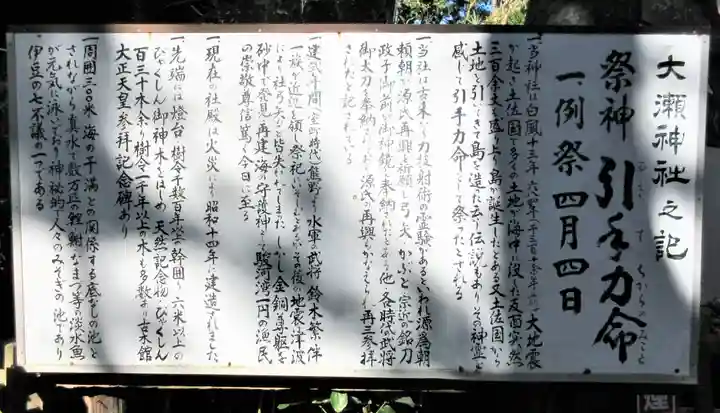 大瀬神社之記
祭神 引手力命
ひきてちからのみこと
一、例祭 四月四日
一、当神社は白鳳十三年
大地震
が起り土佐国で多くの土地が海中に没した反面突然
三百余丈も盛上り島が誕生したとある又土佐国から
土地を引いて来て島を造った云う伝説もありその神霊を
感じて引手力命として祭ったとされる
一、当社は古来より力技射術の霊験があるといわれ源為朝
頼朝は源氏再興を祈願し弓、矢、かぶと、宗近の銘刀
政子御前が御神鏡を奉納
他、各時代武将
御太刀を奉納
源氏の再興
再三参拝
されたと記されている
一、建武年間(室町時代)熊野より水軍の武将鈴木繁伴
一族が近辺を領し祭祀
その後の地震津波
により社
皆失
しかし金銅尊躯を
砂中で発見、再建、海の守護神として駿河湾一円の漁民
の崇敬尊信篤く今日に至る
一、現在の社殿は火災により昭和十四年に建造されました
一、先端には燈台樹令千数百年、幹囲り六米以上の
びゃくしん御神木をはじめ天然記念物びゃくしん
百三十本余り樹令一千年以上の木も多数あり
大正天皇参拝記念碑あり
一、周囲三〇〇米海の干満との関係する底なしの池と
されながら真水で数万匹の鯉、鮒、なまず等の淡水魚
が元気に泳いでおり神秘的で人々のみそぎの池であり
伊豆の七不議の一つである